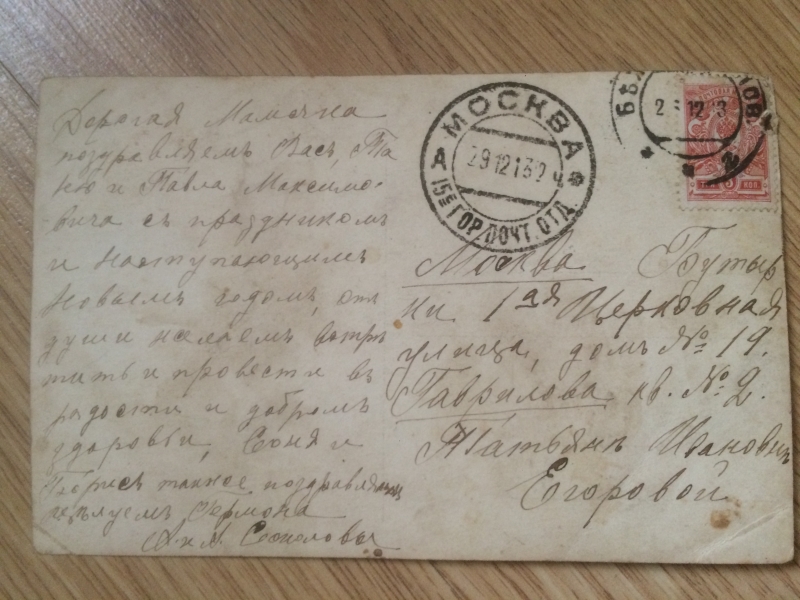 Дорогая Мамочка
поздравляемъ Васъ, Та
ню и Павла Максимо-
вича съ праздникомъ
и наступающимъ
Новымъ годомъ, отъ
души желаемъ встрѣ
тить и провести въ
радости и добромъ
здоровьи, Соня и
Борисъ также поздравляютъ
цѣлуемъ
А. и А. Соколовы
МОСКВА
29 12 13
А 15е ГОР. ПОЧТ. ОТД.
12 13
Москва Бутыр
ки 1ая Церковная
улица, домъ № 19.
Гаврилова кв. № 2.
Татьянѣ Ивановнѣ
Егоровой